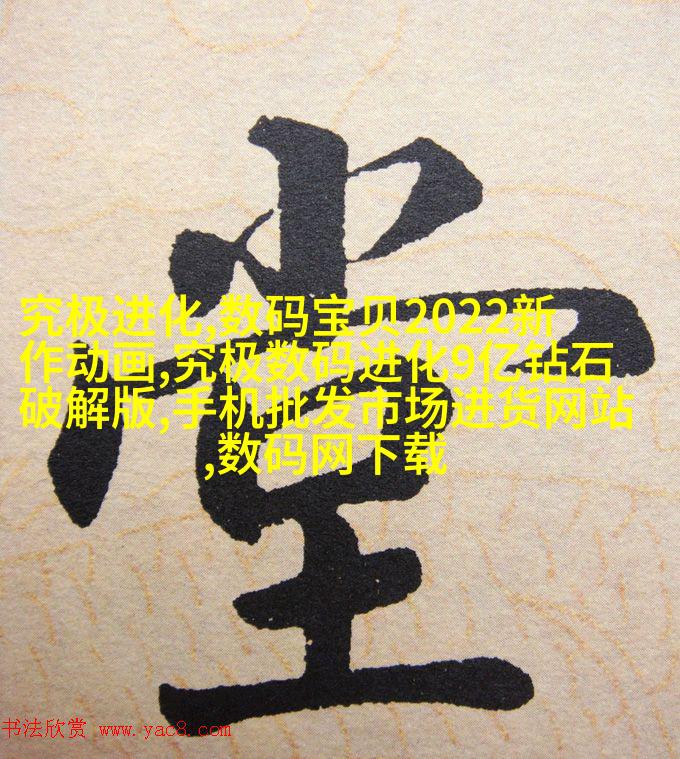 堂
究极进化,数码宝贝2022新
作动画,究极数码进化9亿钻石
破解版,手机批发市场进货网站
,数码网下载
书法欣赏 www.yac8.com